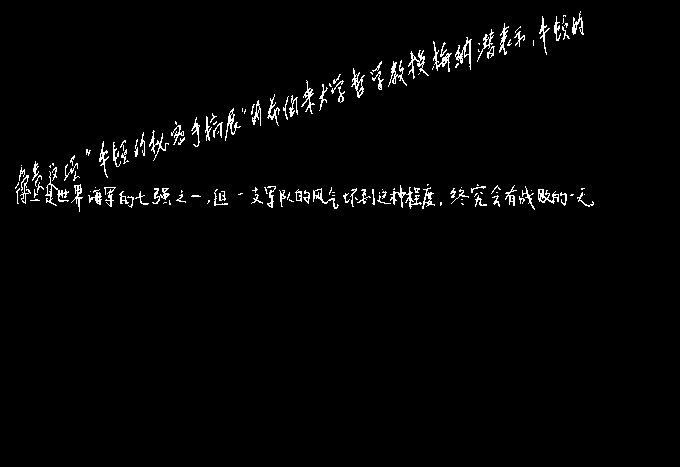 负责这项“牛顿的秘密手稿展”的希伯来大学哲学教授梅纳潜表示,牛顿的
你还是世界海军的七强之一,但一支军队的风气坏到这种程度,终究会有战败的一天。